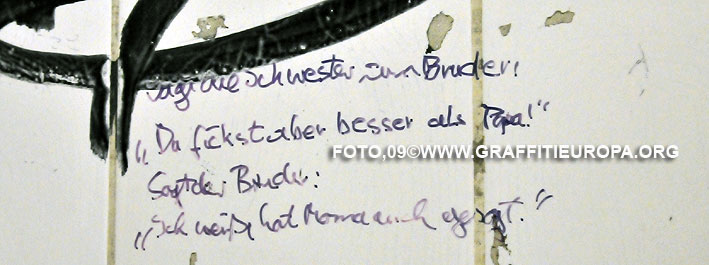 Sagt die Schwester zum Bruder:
„Du fickst aber besser als Papa!“
FOTO,09©WWW.GRAFFITIEUROPA.ORG
Sagt der Bruder:
„Ich weiß, hat Mama auch gesagt.“